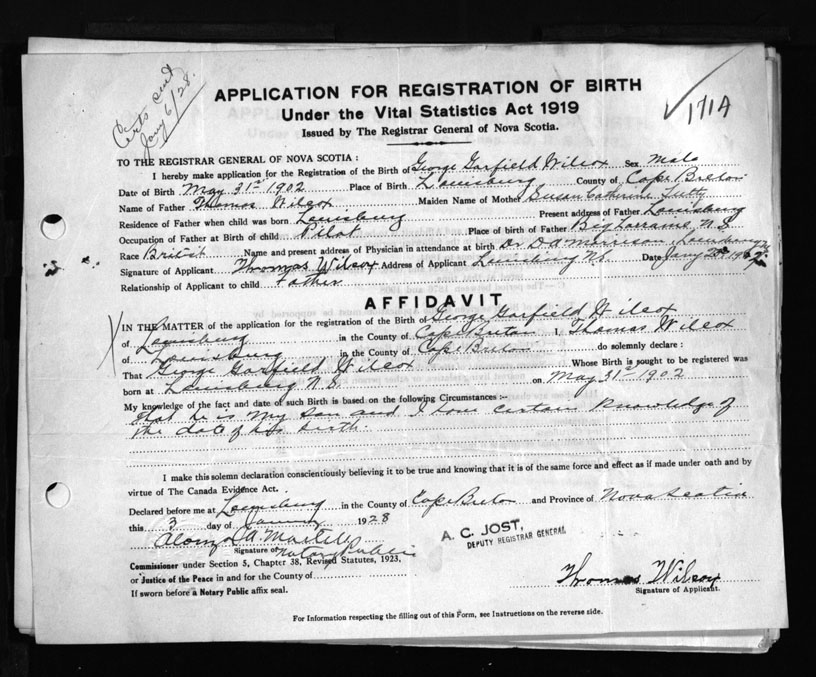 Certs sent
Jany 6/28.
APPLICATION FOR REGISTRATION OF BIRTH
171A
Under the Vital Statistics Act 1919
Issued by The Registrar General of Nova Scotia.
TO THE REGISTRAR GENERAL OF NOVA SCOTIA :
I hereby make application for the Registration of the Birth of George Garfield Wilcox Sex Male
Date of Birth May 31st 1902 Place of Birth Louisburg County of Cape Breton
Name of Father Thomas Wilcox Maiden Name of Mother Susan Catherine Tutty
Residence of Father when child was born Louisburg Present address of Father Louisburg
Occupation of Father at Birth of child Pilot Place of birth of Father Big Lorraine N.S
Race British Name and present address of Physician in attendance at birth Dr D A Morrison, Louisburg NS
Signature of Applicant Thomas Wilcox Address of Applicant Louisburg N.S. Date Jany
Relationship of Applicant to child Father
AFFIDAVIT
IN THE MATTER of the application for the registration of the Birth of George Garfield Wilcox
of Louisburg in the County of Cape Breton I, Thomas Wilcox
of Louisburg in the County of Cape Breton do solemnly declare :
That George Garfield Wilcox Whose Birth is sought to be registered was
born at Louisburg N.S. on May 31st 1902
My knowledge of the fact and date of such Birth is based on the following Circumstances :-
that he is my son and I have certain knowledge of
the date of his birth.
I make this solemn declaration conscientiously believing it to be true and knowing that it is of the same force and effect as if made under oath and by
virtue of The Canada Evidence Act.
Declared before me at Louisburg in the County of Cape Breton and Province of Nova Scotia
this 3 day of January 1928
A. Martell
A. C. JOST,
DEPUTY REGISTRAR GENERAL
Signature of Notary Public
Commissioner under Section 5, Chapter 38, Revised Statutes, 1923,
or Justice of the Peace in and for the County of
Thomas Wilcox
If sworn before a Notary Public affix seal.
Signature of Applicant.
For Information respecting the filling out of this Form, see Instructions on the reverse side.